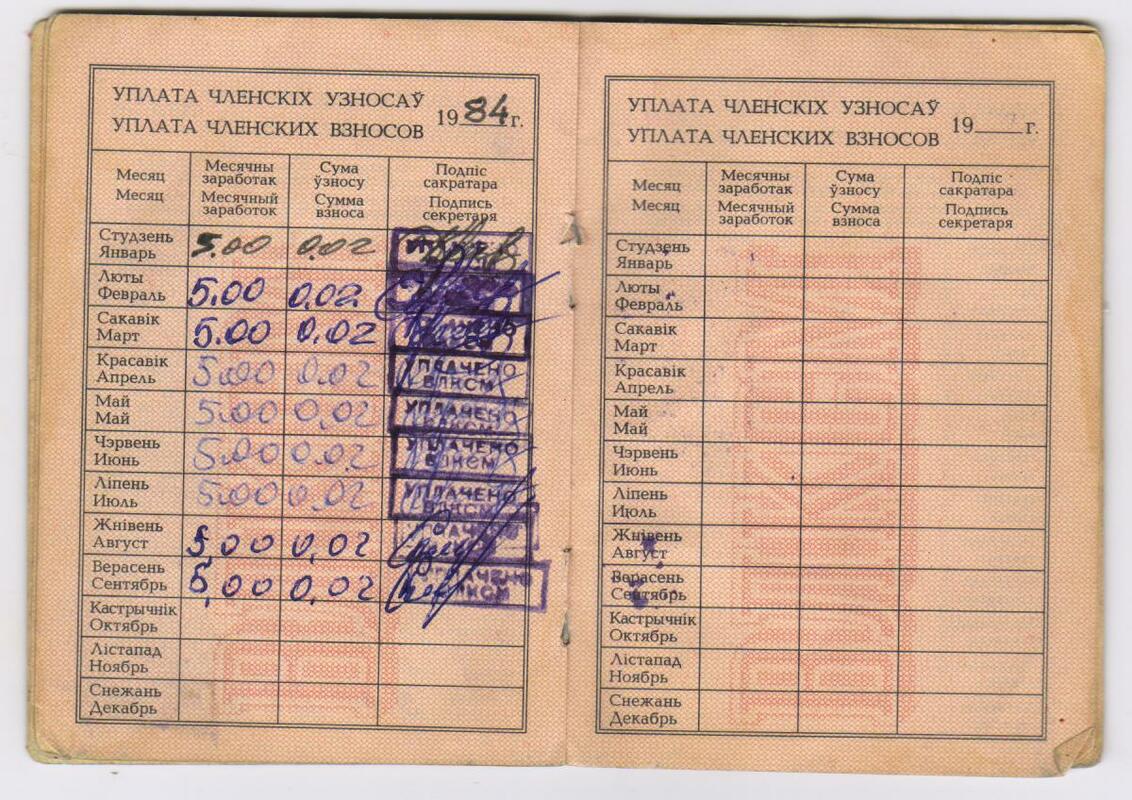 УПЛАТА ЧЛЕНСКІХ УЗНОСАЎ
УПЛАТА ЧЛЕНСКИХ ВЗНОСОВ
1984г.
Месяц
Месяц
Месячны заработак
Месячный заработок
Сума ўзносу
Сумма взноса
Подпіс сакратара
Подпись секретаря
Студзень 5.00 0.02
Январь
Люты 5.00 0.02
Февраль
Сакавік 5.00 0.02
Март
Красавік 5.00 0.02 УПЛАЧЕНО
Апрель ВЛКСМ
Май 5.00 0.02 УПЛАЧЕНО
Май ВЛКСМ
Чэрвень 5.00 0.02 УПЛАЧЕНО
Июнь ВЛКСМ
Ліпень 5.00 0.02 УПЛАЧЕНО
Июль ВЛКСМ
Жнівень 5,00 0,02 УПЛАЧЕНО
Август
Верасень 5,00 0,02 УПЛАЧЕНО
Сентябрь ВЛКСМ
Кастрычнік
Октябрь
Лістапад
Ноябрь
Снежань
Декабрь
УПЛАТА ЧЛЕНСКІХ УЗНОСАЎ
УПЛАТА ЧЛЕНСКИХ ВЗНОСОВ
19___г.
Месяц
Месяц
Месячны заработак
Месячный заработок
Сума ўзносу
Сумма взноса
Подпіс сакратара
Подпись секретаря
Студзень
Январь
Люты
Февраль
Сакавік
Март
Красавік
Апрель
Май
Май
Чэрвень
Июнь
Ліпень
Июль
Жнівень
Август
Верасень
Сентябрь
Кастрычнік
Октябрь
Лістапад
Ноябрь
Снежань
Декабрь